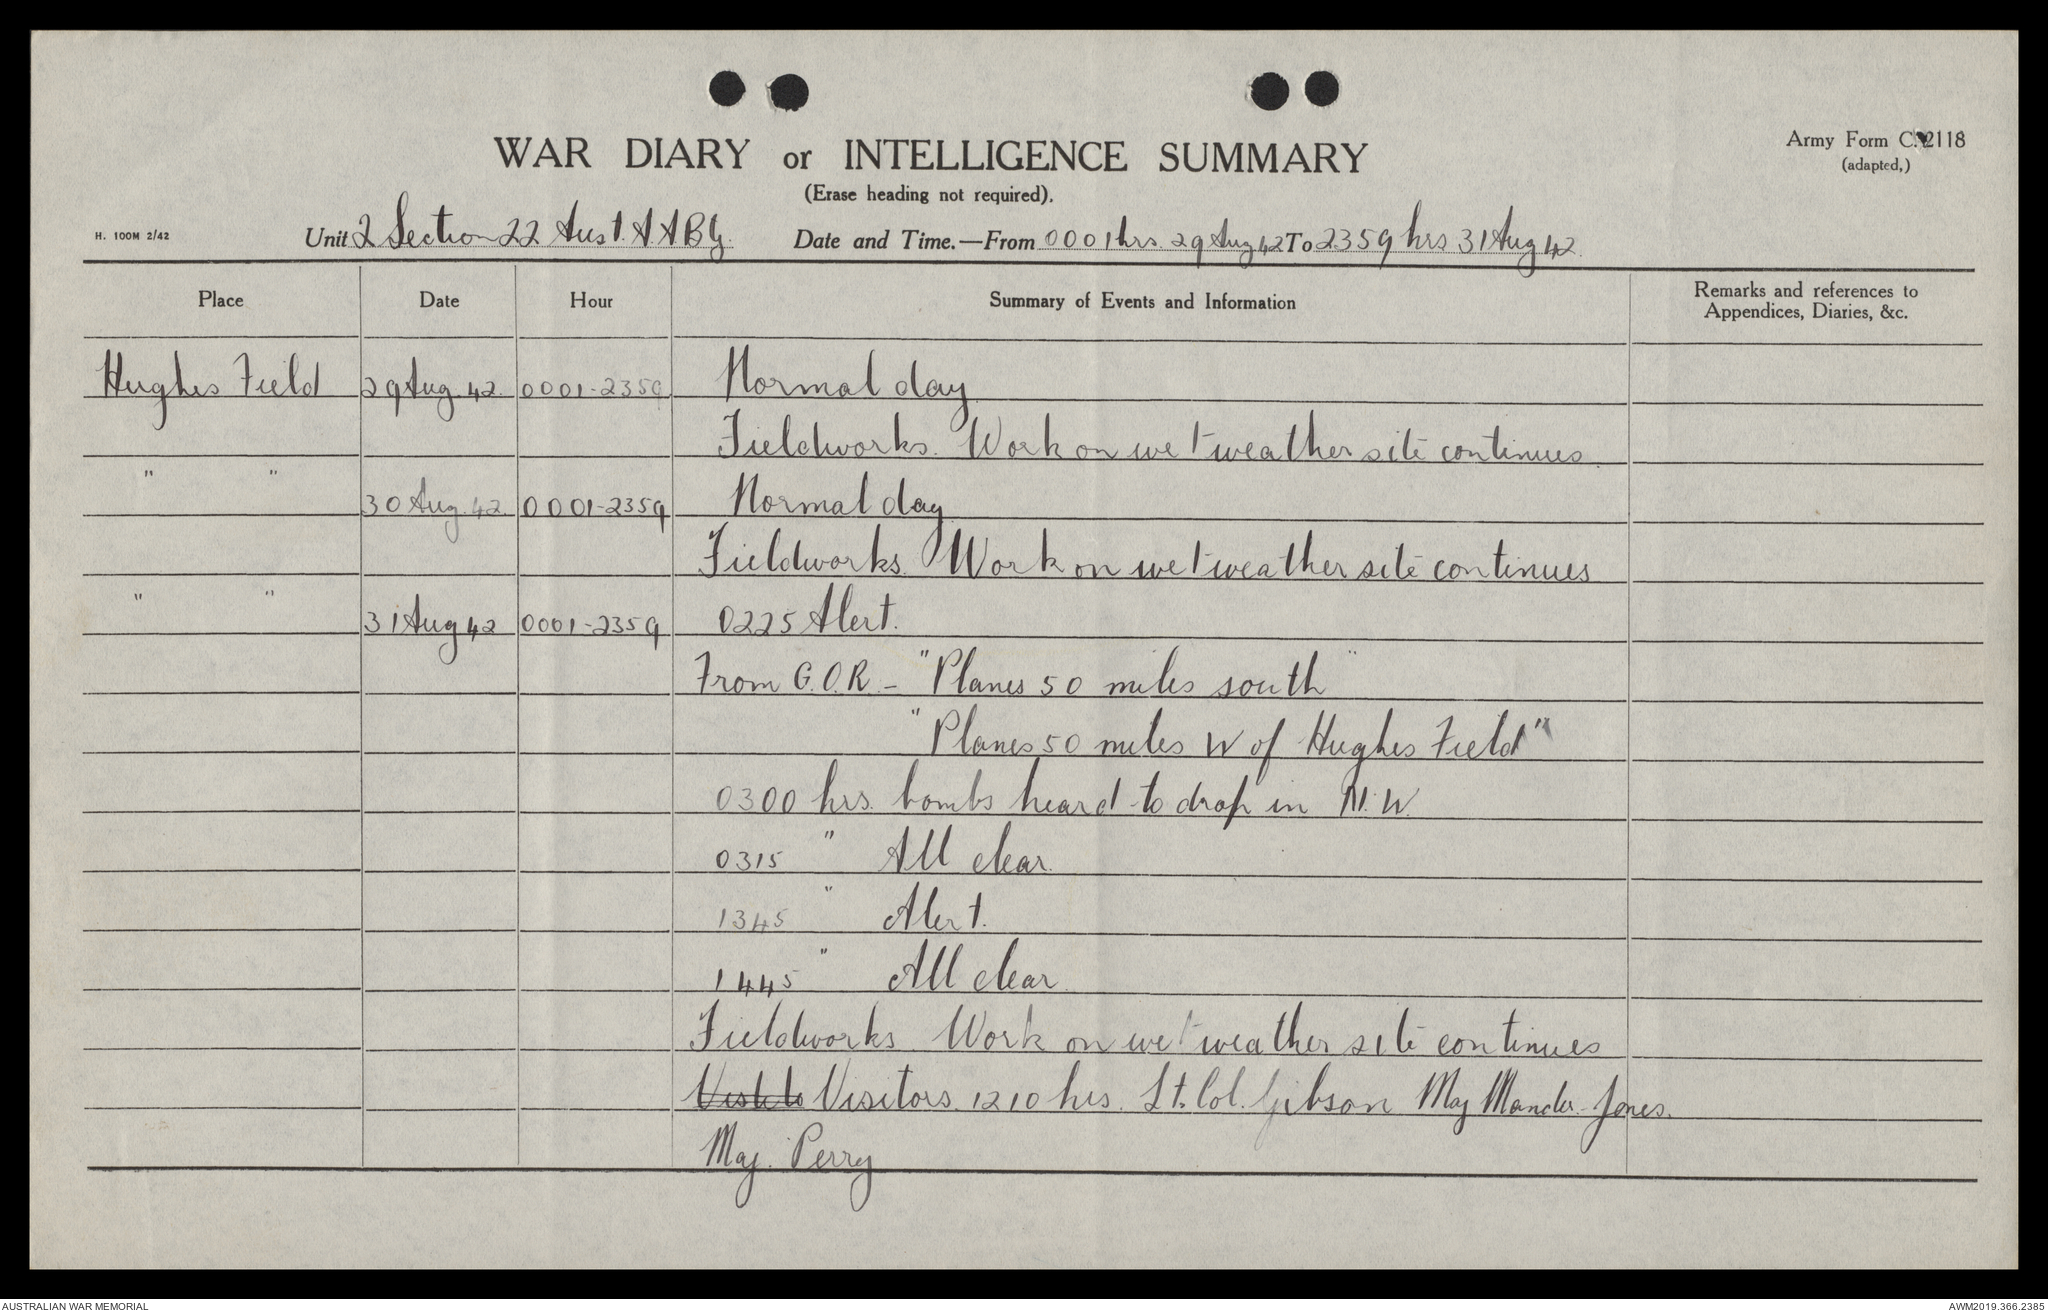 WAR DIARY or INTELLIGENCE SUMMARY
(Erase heading not required).
Army Form C.2118
(adapted,)
H. 100M 2/42
Unit 2 Section 22 Aust. A A Bty. Date and Time.—From 0001hrs. 29 Aug 42 To 2359 hrs 31 Aug 42
Place Date Hour Summary of Events and Information Remarks and references to Appendices, Diaries, &c.
Hughes Field 29 Aug. 42. 0001-2359 Normal day
Fieldworks. Work on wet weather site continues.
" " 30 Aug. 42. 0001-2359 Normal day
Fieldworks. Work on wet weather site continues
" " 31 Aug 42 0001-2359 0225 Alert.
From G.O.R. - "Planes 50 miles south"
"Planes 50 miles W of Hughes Field"
0300 hrs. bombs heard to drop in N.W.
0315 " All clear.
1345 " Alert.
1445 " All clear.
Fieldworks Work on wet weather site continues
Visitors. 1210 hrs. Lt. Col. Gibson Maj Mander-Jones.
Maj. Perry
AUSTRALIAN WAR MEMORIAL
AWM2019.366.2385